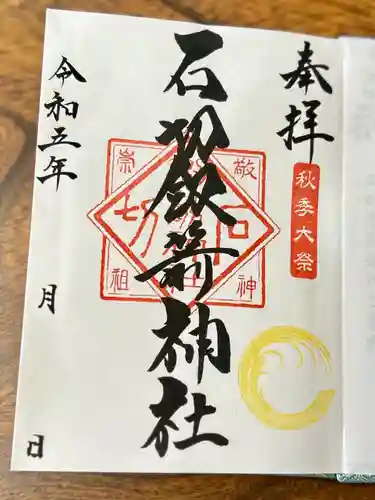 奉拝
秋季大祭
石切劔箭神社
敬神
崇祖
石切
令和五年 月 日